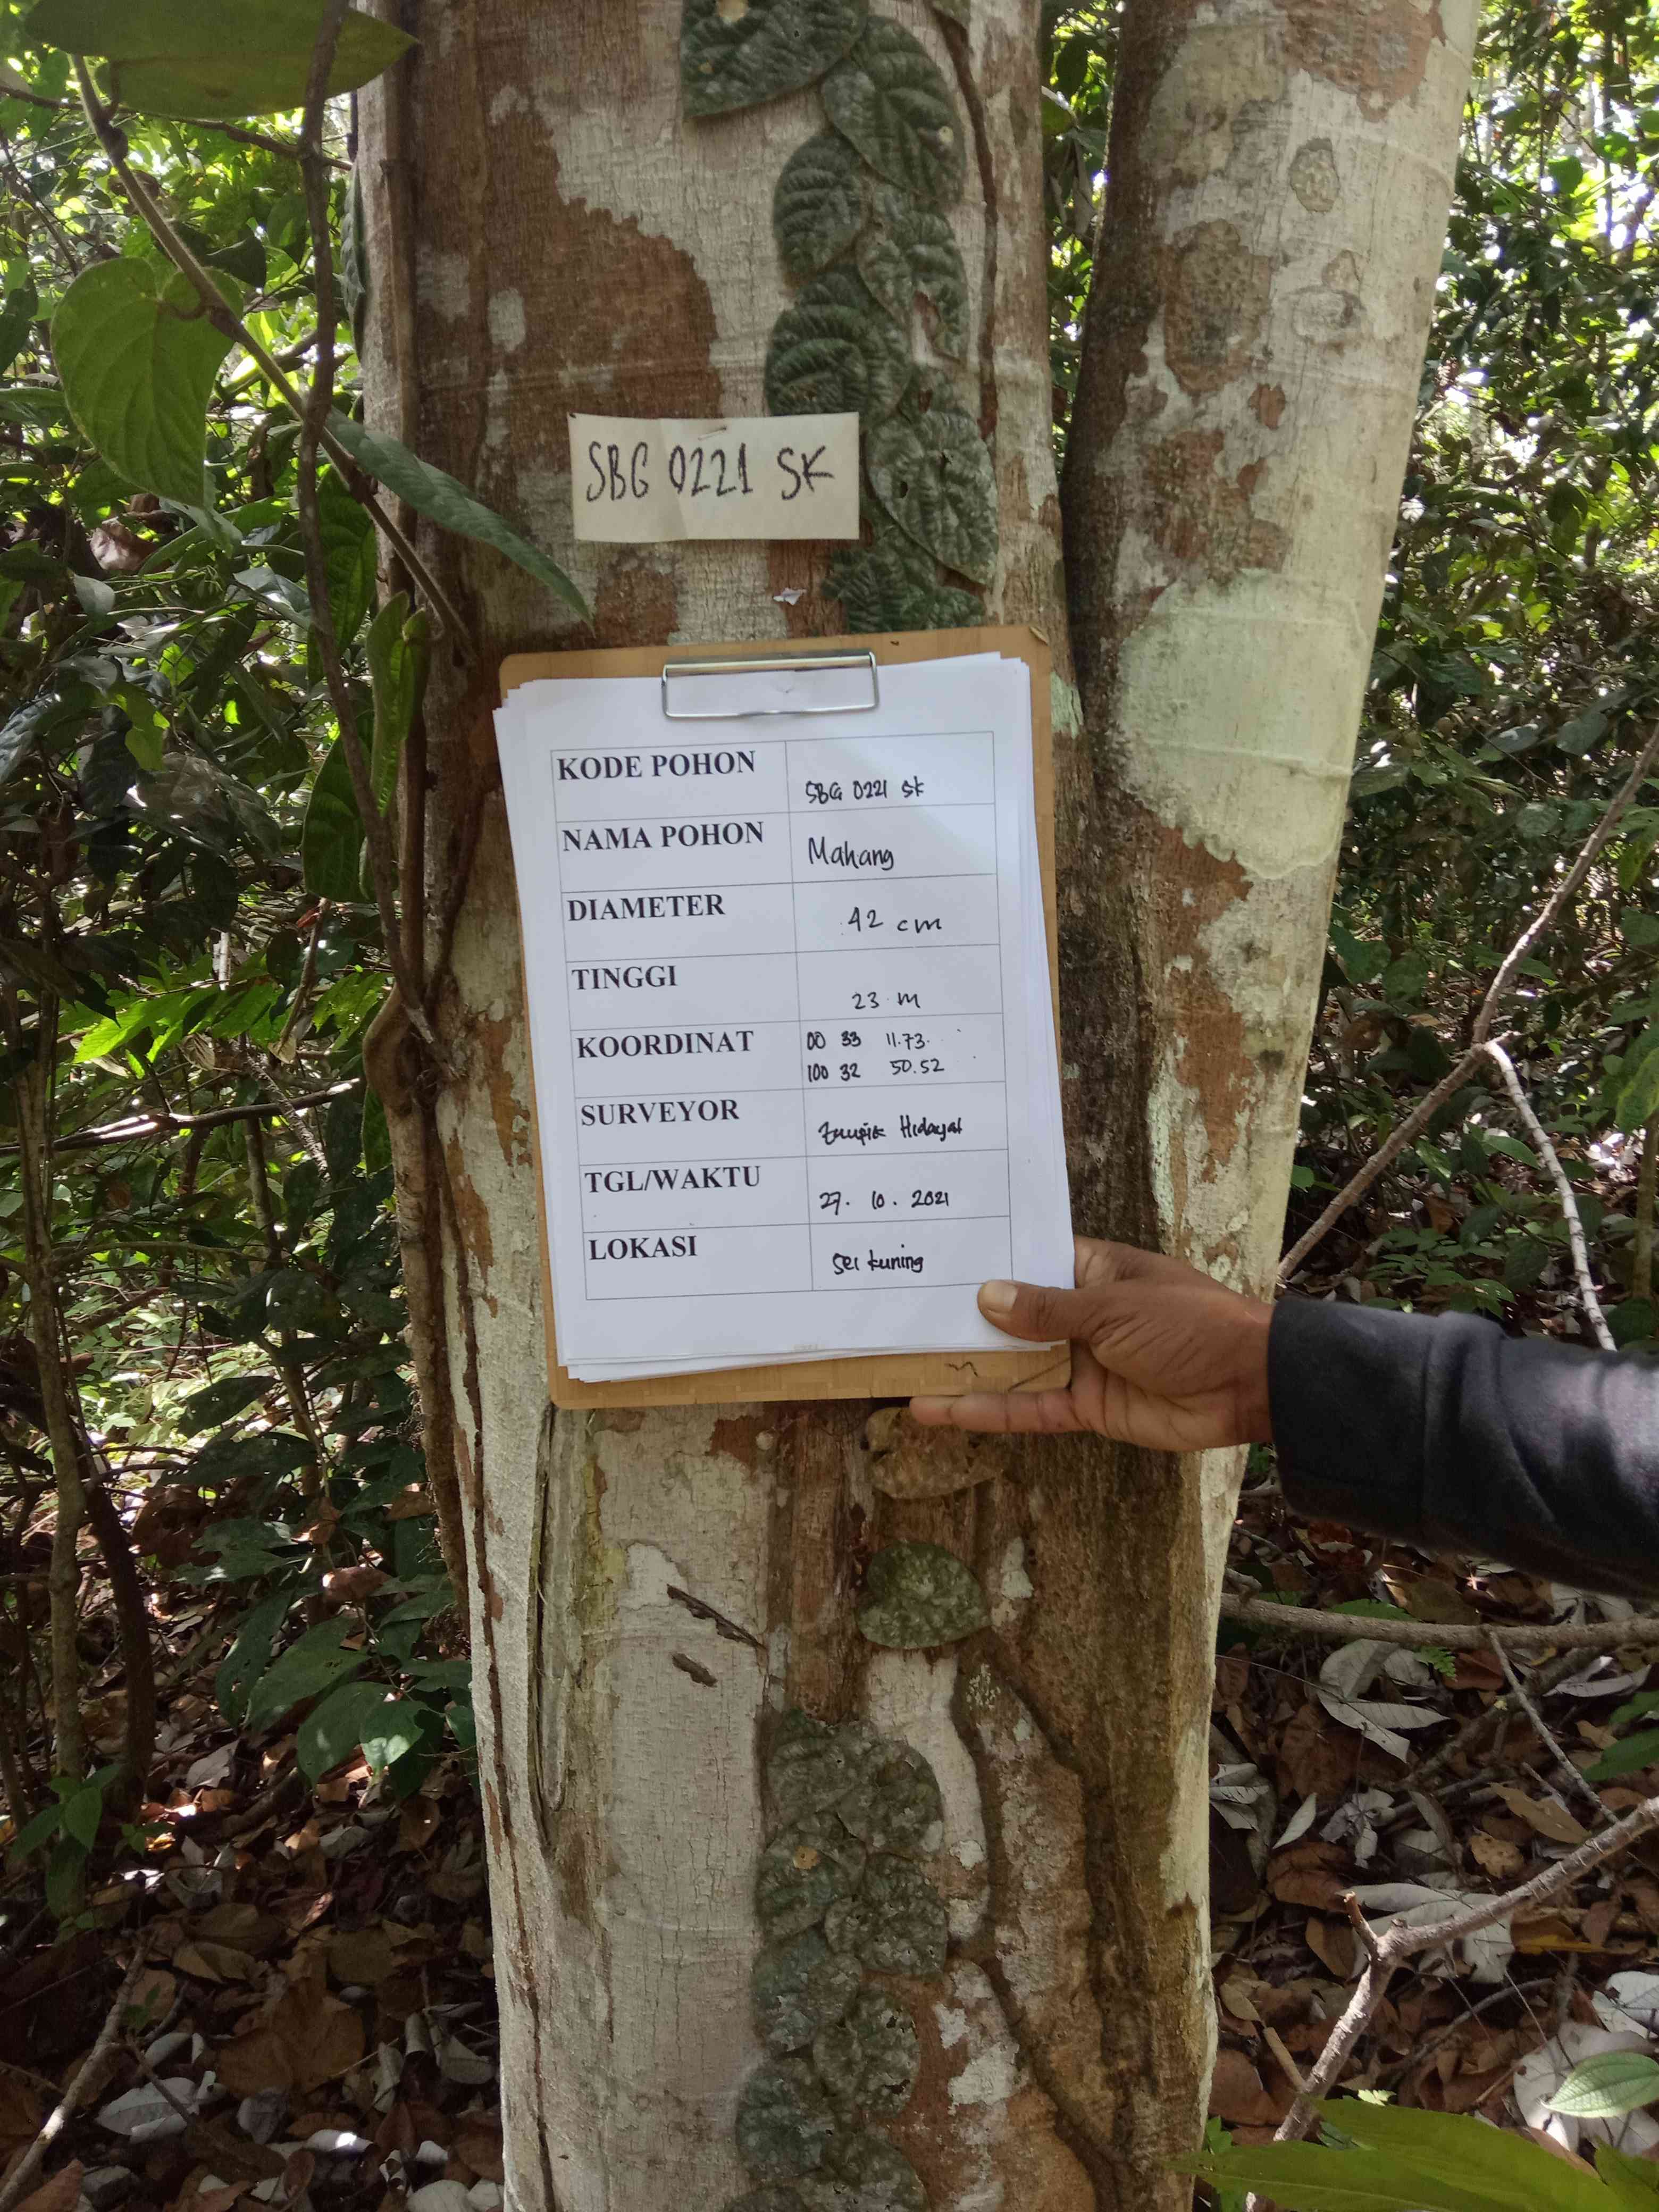 SBG 0221 SK
KODE POHON
SBG 0221 SK
NAMA POHON
Mahang
DIAMETER
42 cm
TINGGI
23 m
KOORDINAT
00 33 11.73
100 32 50.52
SURVEYOR
Hidayat
TGL/WAKTU
27. 10. 2021
LOKASI
Sei kuning